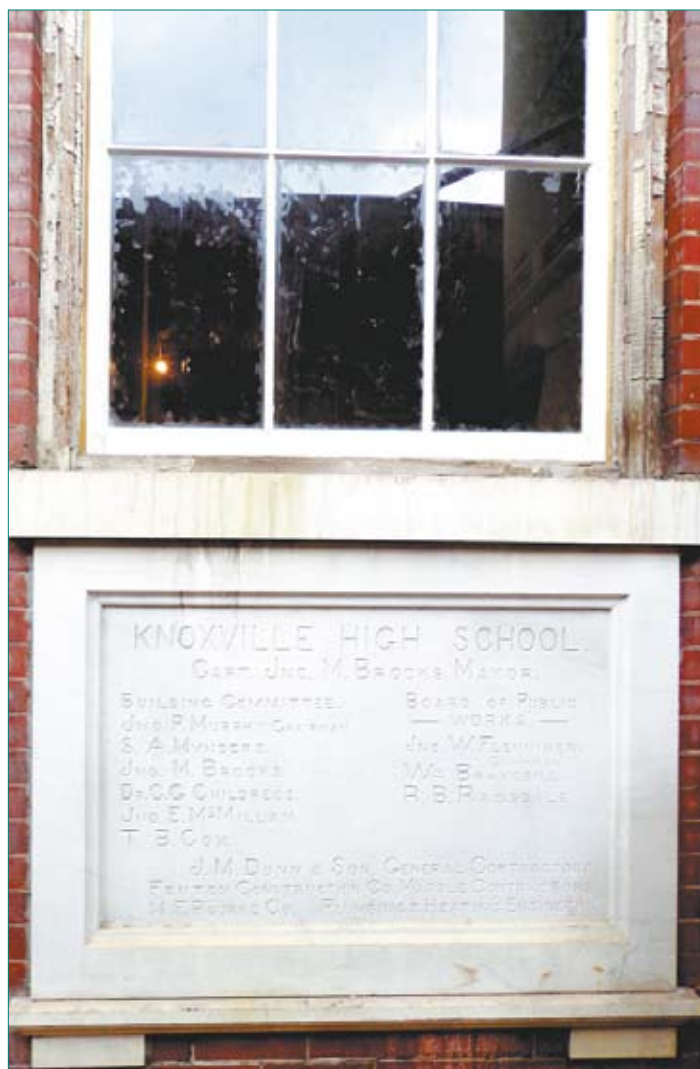 KNOXVILLE HIGH SCHOOL.
CAPT. JNO. M. BROOKS MAYOR.
BUILDING COMMITTEE.
JNO. P. MURPHY CHAIRMAN
S. A. MYNDERS.
JNO. M. BROOKS.
DR. C. G. CHILDRESS.
JNO. E. McMILLAN.
T. B. COX.
BOARD OF PUBLIC
— WORKS. —
JNO W. FLENNIKEN.
CHAIRMAN
WM BRAKEBILL.
R. B. RAGSDALE.
J. M. DUNN & SON, GENERAL CONTRACTORS
FENTON CONSTRUCTION CO. MARBLE CONTRACTORS
M. F. ROURKE CO. PLUMBING & HEATING ENGINEERS